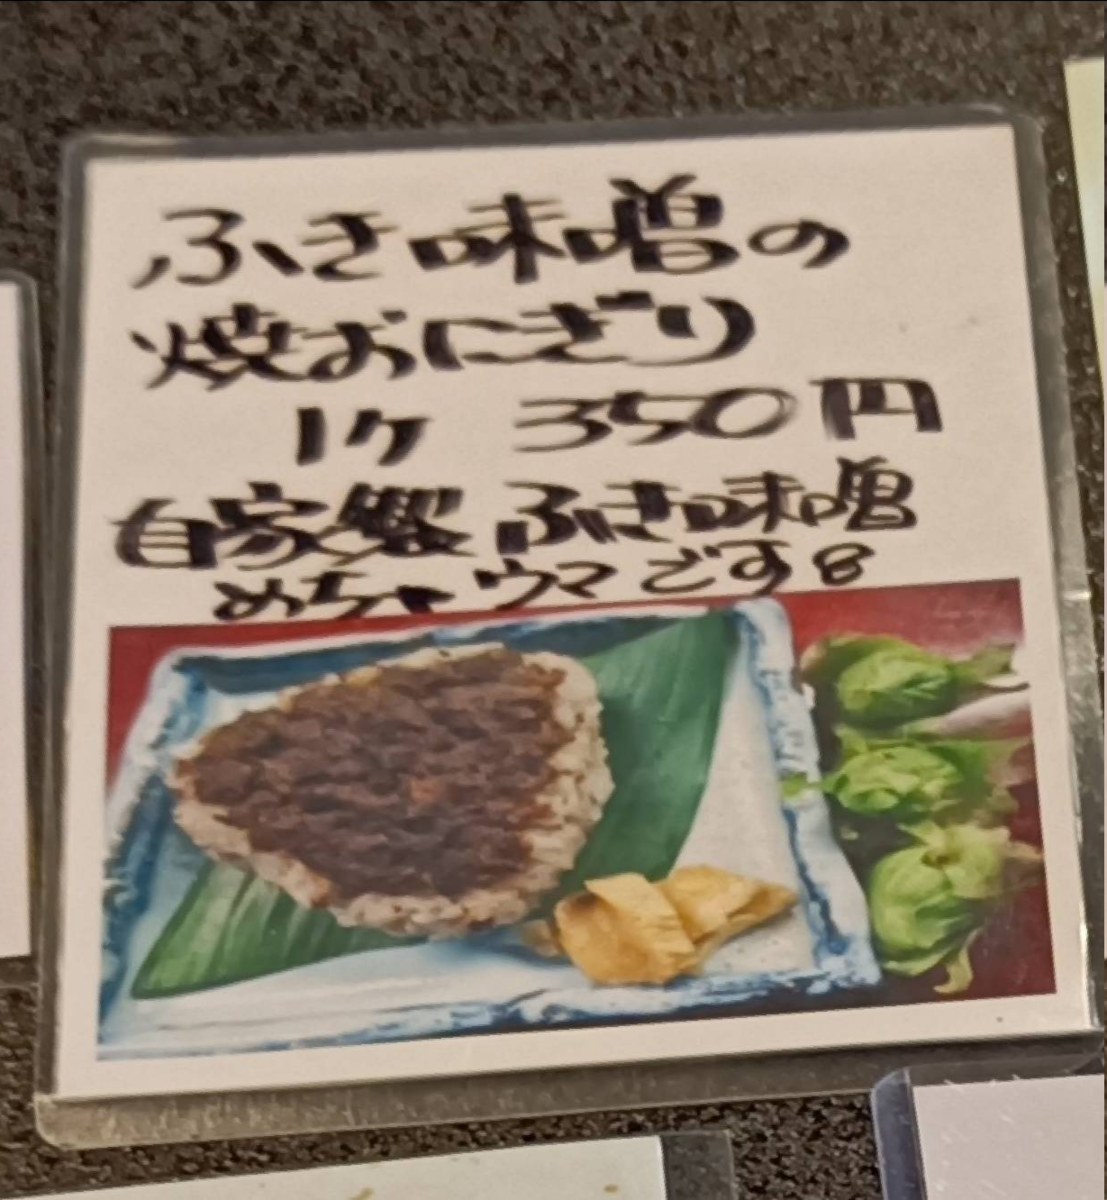 ふき味噌の
焼おにぎり
1ヶ 350円
自家製 ふき味噌
めちゃウマです